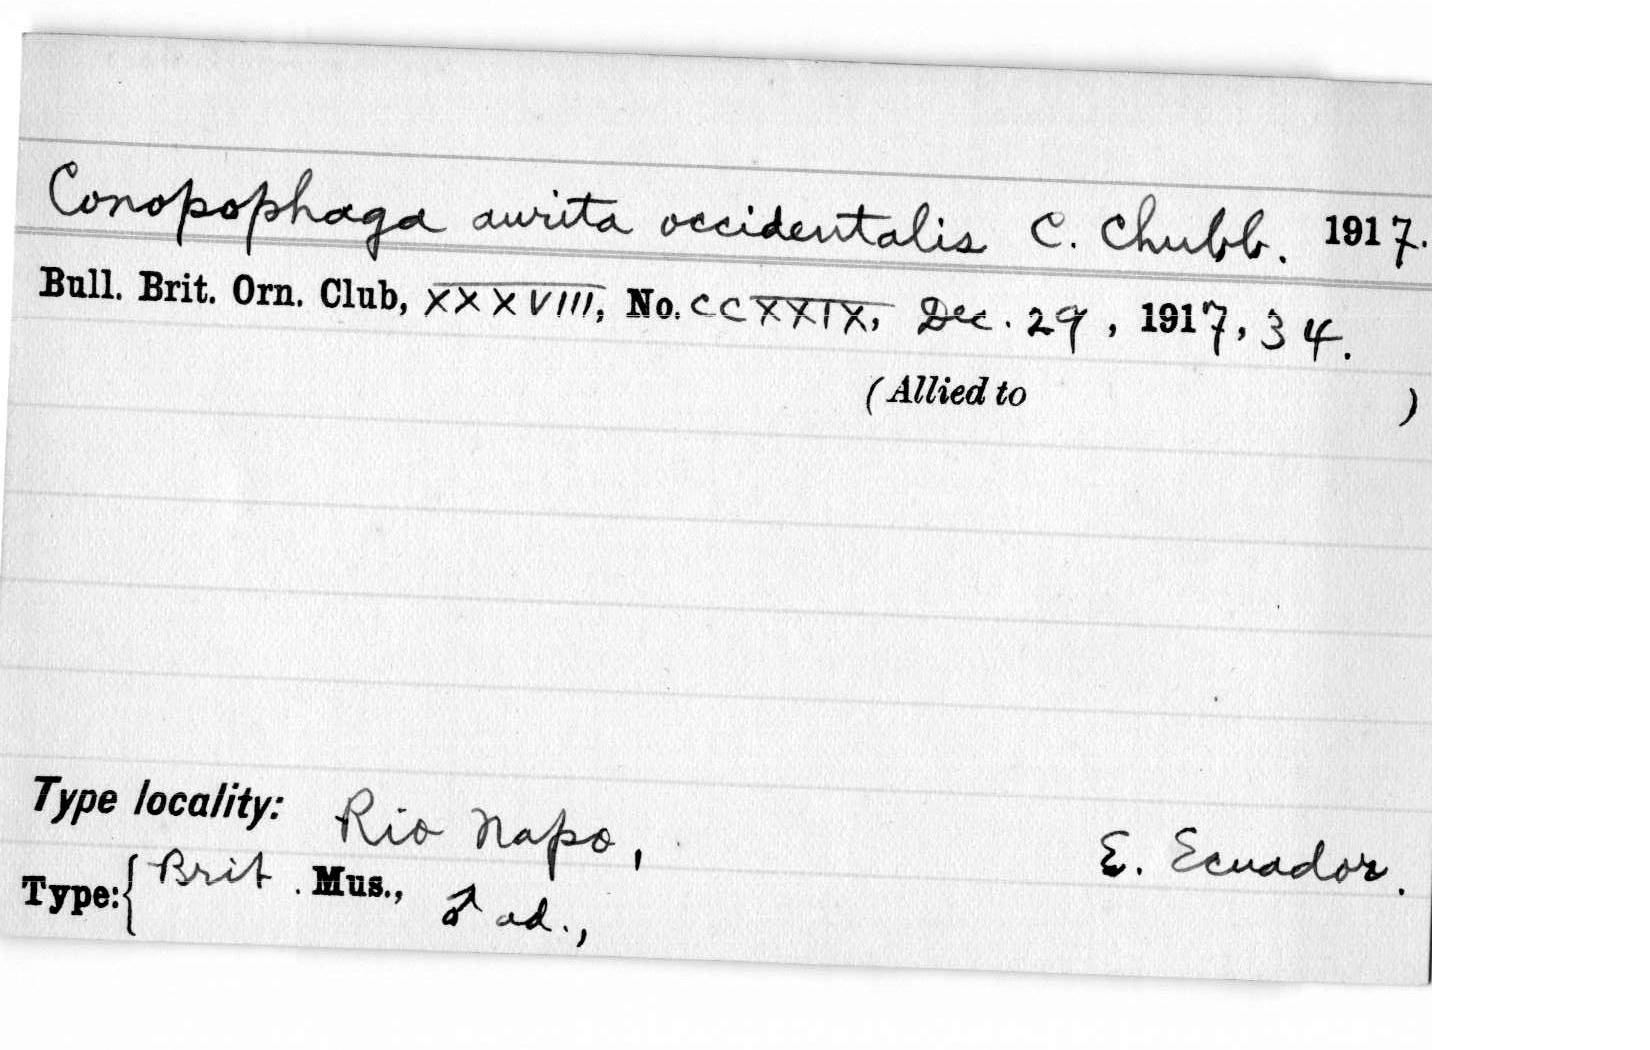 Conopophaga aurita occidentalis C. Chubb. 1917.
Bull. Brit. Orn. Club, XXXVIII, No. CCXXIX, Dec. 29, 1917, 34.
(Allied to )
Type locality: Rio Napo, E. Ecuador.
Type: { Brit. Mus., ♂ ad.,